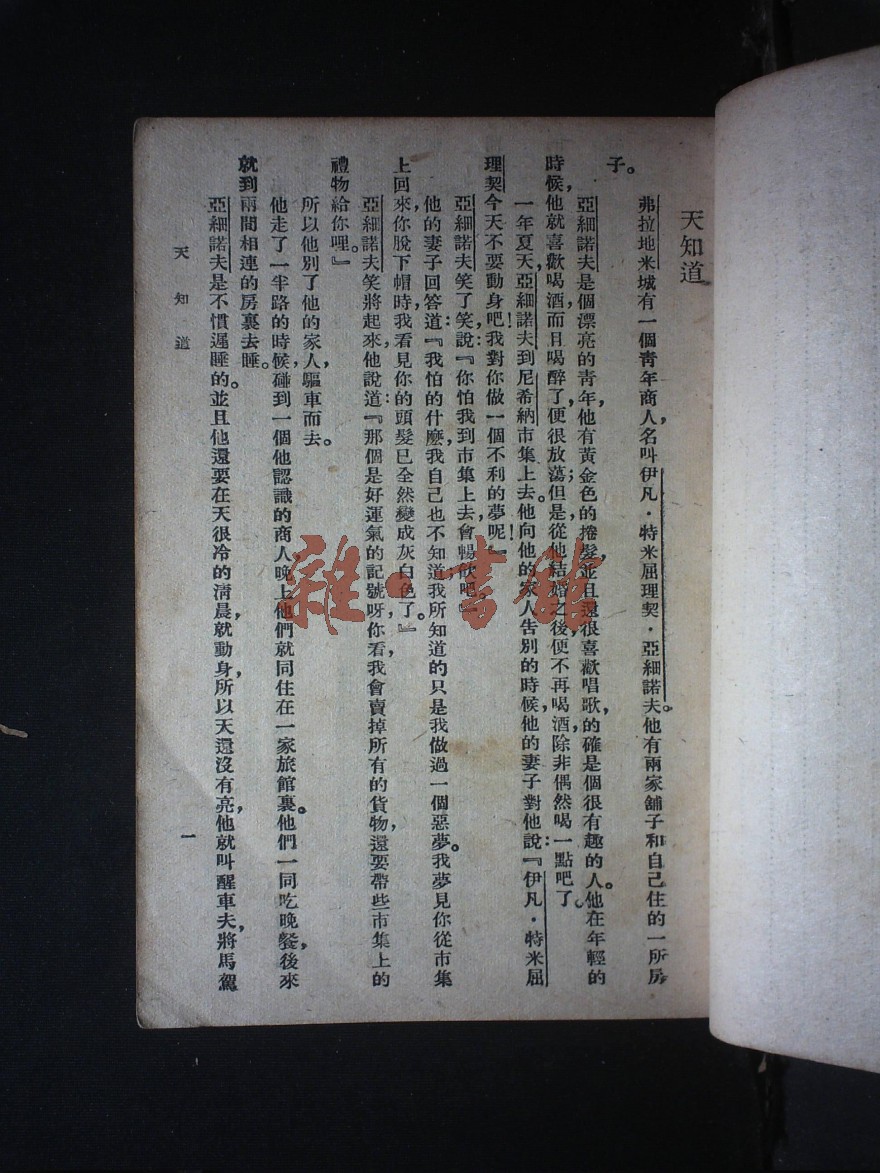 天知道
弗拉地米城有一個靑年商人，名叫伊凡·特米屈理契·亞細諾夫。他有兩家舖子和自己住的一所房
子。
亞細諾夫是個漂亮的靑年，他有黃金色的捲髮，並且還很喜歡唱歌，的確是個很有趣的人。他在年輕的
時候，他就喜歡喝酒，而且喝醉了，便很放蕩；但是從他結婚之後，便不再喝酒，除非偶然喝一點吧了。
一年夏天，亞細諾夫到尼希納市集上去。他向他的家人吿別的時候，他的妻子對他說：『伊凡·特米屈
理契今天不要動身吧！我對你做一個不利的夢呢！』
亞細諾夫笑了笑，說：『你怕我到市集上去，會暢飲吧。』
他的妻子回答道：『我怕的什麽，我自己也不知道；我所知道的只是我做過一個惡夢。我夢見你從市集
上回來，你脫下帽時，我看見你的頭髮已全然變成灰白色了。』
亞細諾夫笑將起來，他說道：『那個是好運氣的記號呀，你看，我會賣掉所有的貨物，還要帶些市集上的
禮物給你哩。』
所以他別了他的家人，驅車而去。
他走了一半路的時候，碰到一個他認識的商人，晚上他們就同住在一家旅館裏。他們一同吃晚餐，後來
就到兩間相連的房裏去睡。
亞細諾夫是不慣遲睡的。並且他還要在天很冷的淸晨，就動身，所以天還沒有亮，他就叫醒車夫，將馬駕
天知道
一
雜·書館